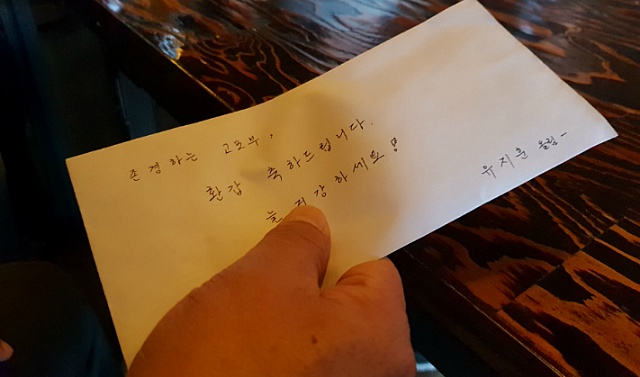 존경하는 고모부,
환갑 축하드립니다.
늘 건강하세요!
유지훈 올림-